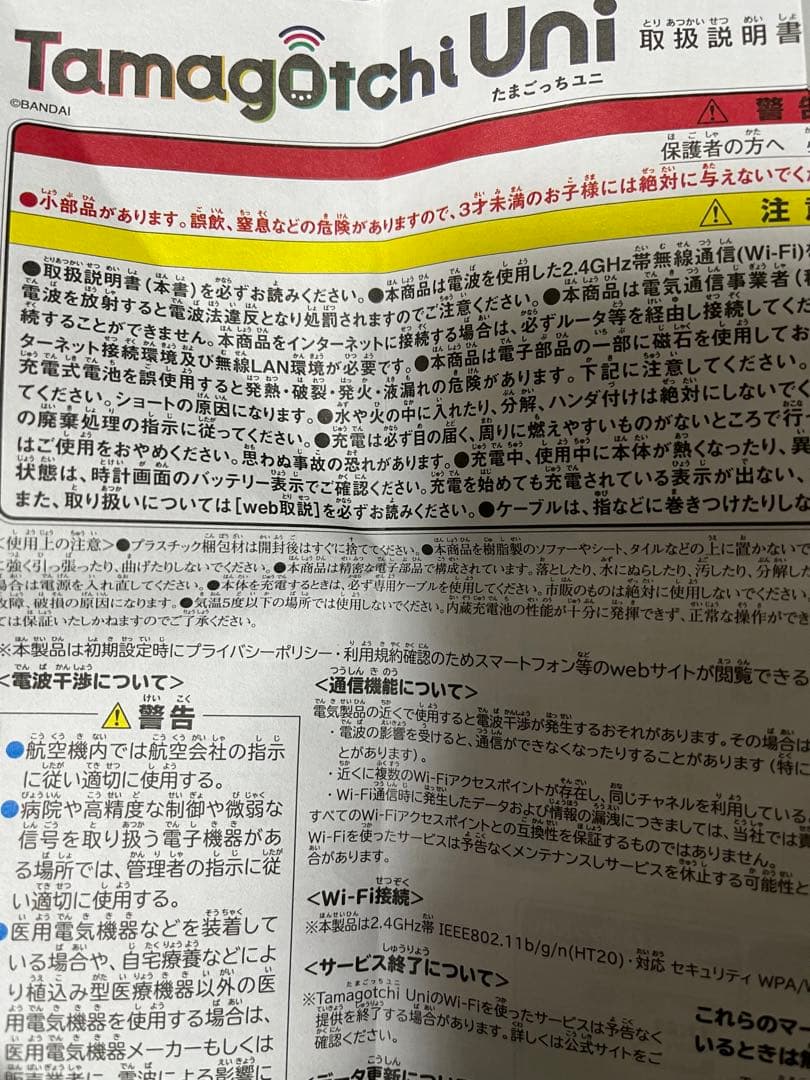 Tamagotchi Uni 取扱説明書
たまごっちユニ
©BANDAI
⚠ 警告
保護者の方へ
●小部品があります。誤飲、窒息などの危険がありますので、3才未満のお子様には絶対に与えないでくだ
⚠ 注
●取扱説明書(本書)を必ずお読みください。●本商品は電波を使用した2.4GHz帯無線通信(Wi-Fi)を
電波を放射すると電波法違反となり処罰されますのでご注意ください。●本商品は電気通信事業者(
続することができません。本商品をインターネットに接続する場合は、必ずルータ等を経由し接続してくだ
ターネット接続環境及び無線LAN環境が必要です。●本商品は電子部品の一部に磁石を使用してお
充電式電池を誤使用すると発熱・破裂・発火・液漏れの危険があります。下記に注意してください。
てください。ショートの原因になります。●水や火の中に入れたり、分解、ハンダ付けは絶対にしないで
の廃棄処理の指示に従ってください。●充電は必ず目の届く、周りに燃えやすいものがないところで行
はご使用をおやめください。思わぬ事故の恐れがあります。●充電中、使用中に本体が熱くなったり、異
状態は、時計画面のバッテリー表示でご確認ください。充電を始めても充電されている表示が出ない、
また、取り扱いについては[web取説]を必ずお読みください。●ケーブルは、指などに巻きつけたりしな
<使用上の注意>●プラスチック梱包材は開封後はすぐに捨ててください。●本商品を樹脂製のソファーやシート、タイルなどの上に置かないで
に強く引っ張ったり、曲げたりしないでください。●本商品は精密な電子部品で構成されています。落としたり、水にぬらしたり、汚したり、分解した
場合は電源を入れ直してください。●本体を充電するときは、必ず専用ケーブルを使用してください。市販のものは絶対に使用しないでください。
故障、破損の原因になります。●気温5度以下の場所では使用しないでください。内蔵充電池の性能が十分に発揮できず、正常な操作ができ
ては保証いたしかねますのでご了承ください。
※本製品は初期設定時にプライバシーポリシー・利用規約確認のためスマートフォン等のwebサイトが閲覧できる
<電波干渉について>
⚠ 警告
●航空機内では航空会社の指示
に従い適切に使用する。
●病院や高精度な制御や微弱な
信号を取り扱う電子機器があ
る場所では、管理者の指示に従
い適切に使用する。
●医用電気機器などを装着して
いる場合や、自宅療養などによ
り植込み型医療機器以外の医
用電気機器を使用する場合は、
医用電気機器メーカーもしくは
販売業者に、電波による影響に
<通信機能について>
電気製品の近くで使用すると電波干渉が発生するおそれがあります。その場合は
・電波の影響を受けると、通信ができなくなったりすることがあります(特に
とがあります)。
・近くに複数のWi-Fiアクセスポイントが存在し、同じチャネルを利用している
・Wi-Fi通信時に発生したデータおよび情報の漏洩につきましては、当社では責
すべてのWi-Fiアクセスポイントとの互換性を保証するものではありません。
Wi-Fiを使ったサービスは予告なくメンテナンスしサービスを休止する可能性と
合があります。
<Wi-Fi接続>
※本製品は2.4GHz帯 IEEE802.11b/g/n(HT20)・対応 セキュリティ WPA/
<サービス終了について>
※Tamagotchi UniのWi-Fiを使ったサービスは予告なく
提供を終了する場合があります。詳しくは公式サイトをご
確認ください。
<データ更新について
これらのマー
いるときは